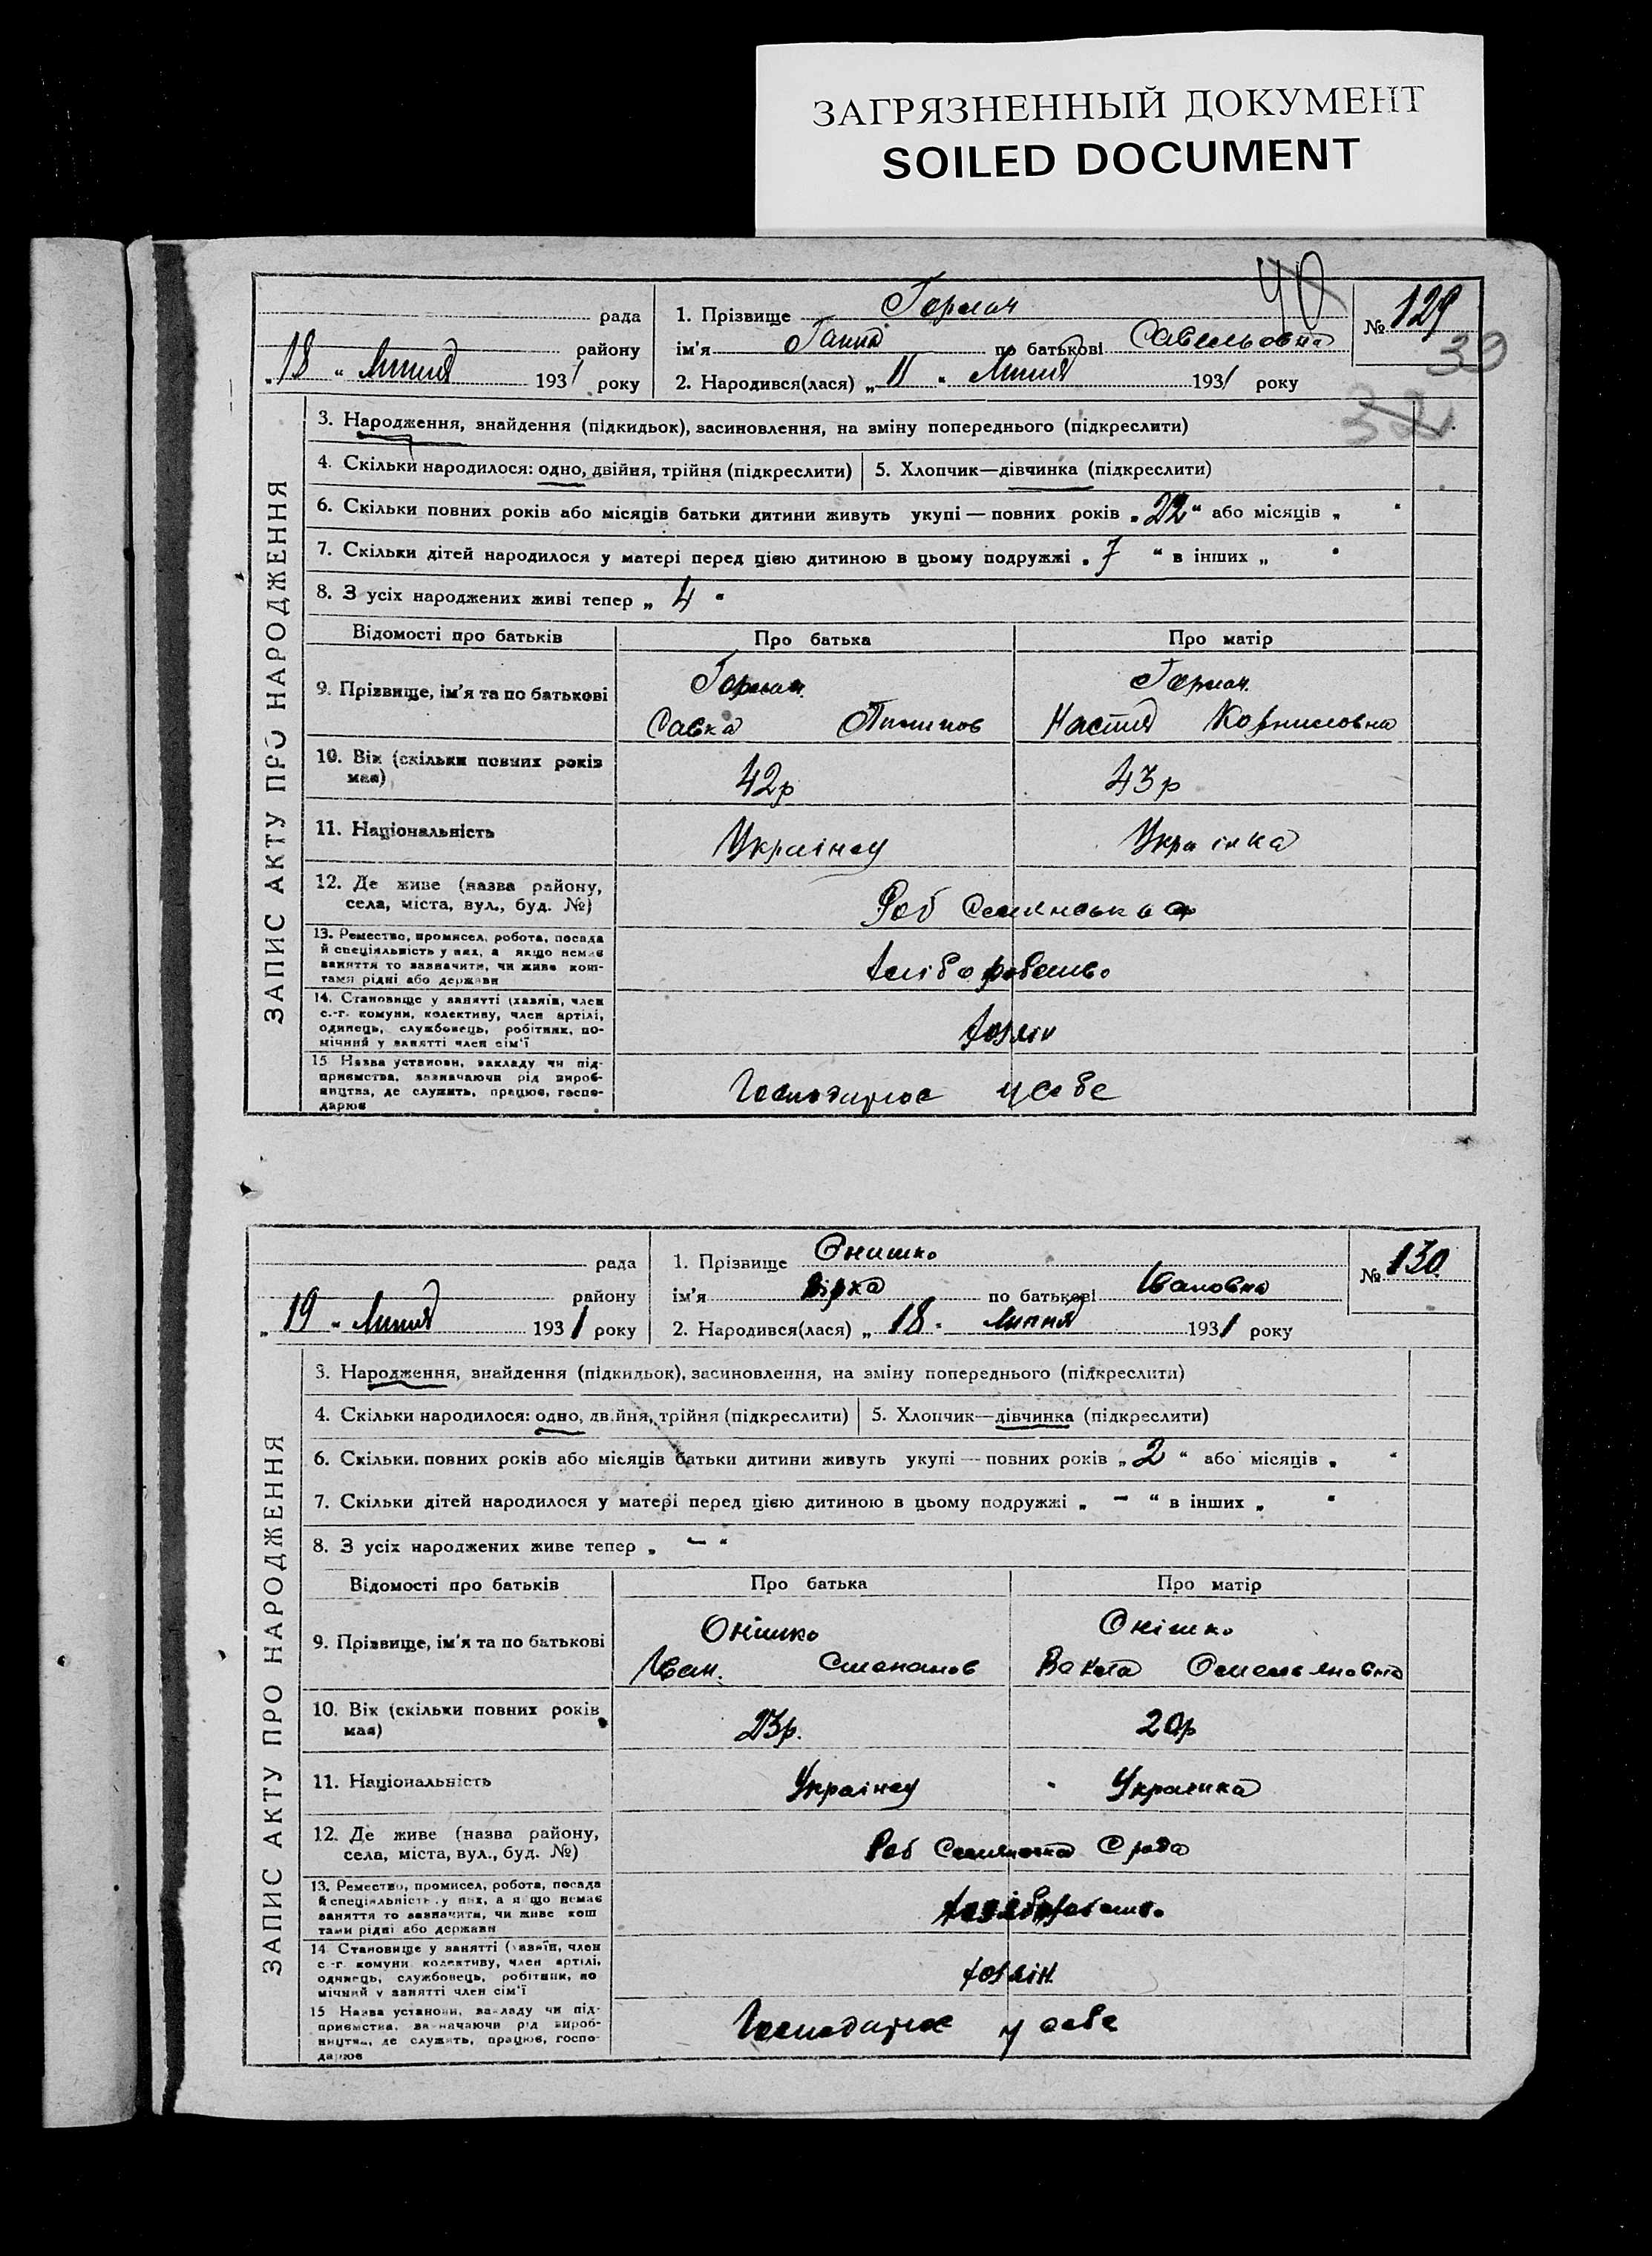 ЗАГРЯЗНЕННЫЙ ДОКУМЕНТ
SOILED DOCUMENT
40
рада
району
„18“ Липня 1931 року
1. Прізвище Гормач
ім'я Ганна по батькові Савельовна
2. Народився(лася) „11“ Липня 1931 року
№ 129
39
32
ЗАПИС АКТУ ПРО НАРОДЖЕННЯ
3. Народження, знайдення (підкидьок), засиновлення, на зміну попереднього (підкреслити)
4. Скільки народилося: одно, двійня, трійня (підкреслити) 5. Хлопчик—дівчинка (підкреслити)
6. Скільки повних років або місяців батьки дитини живуть укупі — повних років „22“ або місяців „ “
7. Скільки дітей народилося у матері перед цією дитиною в цьому подружжі „7“ в інших „ “
8. З усіх народжених живі тепер „4“
Відомості про батьків Про батька Про матір
9. Прізвище, ім'я та по батькові
Гормач Гормач
Савка Настя
10. Вік (скільки повних років має)
42р 43р
11. Національність
Українец Українка
12. Де живе (назва району, села, міста, вул., буд. №)
Роб
13. Ремество, промисел, робота, посада й спеціяльність у них, а якщо немає заняття то зазначити, чи живе коштами рідні або держави
хліборобство
14. Становище у занятті (хазяїн, член с.-г. комуни, колективу, член артілі, одинець, службовець, робітник, помічний у занятті член сім'ї
хозяін
15 Назва установи, закладу чи підприємства, зазначаючи рід виробництва, де служить, працює, господарює
Господарює у себе
рада
району
„19“ Липня 1931 року
1. Прізвище Онишко
ім'я Вірка по батькові Івановна
2. Народився(лася) „18“ липня 1931 року
№ 130
ЗАПИС АКТУ ПРО НАРОДЖЕННЯ
3. Народження, знайдення (підкидьок), засиновлення, на зміну попереднього (підкреслити)
4. Скільки народилося: одно, двійня, трійня (підкреслити) 5. Хлопчик—дівчинка (підкреслити)
6. Скільки повних років або місяців батьки дитини живуть укупі — повних років „2“ або місяців „ “
7. Скільки дітей народилося у матері перед цією дитиною в цьому подружжі „ – “ в інших „ “
8. З усіх народжених живе тепер „ – “
Відомості про батьків Про батька Про матір
9. Прізвище, ім'я та по батькові
Онішко Онішко
Іван. Степанов Омельяновна
10. Вік (скільки повних років має)
23р. 20р
11. Національність
Українец Українка
12. Де живе (назва району, села, міста, вул., буд. №)
Роб С рада
13. Ремество, промисел, робота, посада й спеціяльність у них, а якщо немає заняття то зазначити, чи живе коштами рідні або держави
хліборобство
14 Становище у занятті (хазяїн, член с.-г. комуни колективу, член артілі, одинець, службовець, робітник, помічний у занятті член сім'ї
хозяін
15 Назва установи, закладу чи підприємства, зазначаючи рід виробництва, де служить, працює, господарює
Господарює у себе